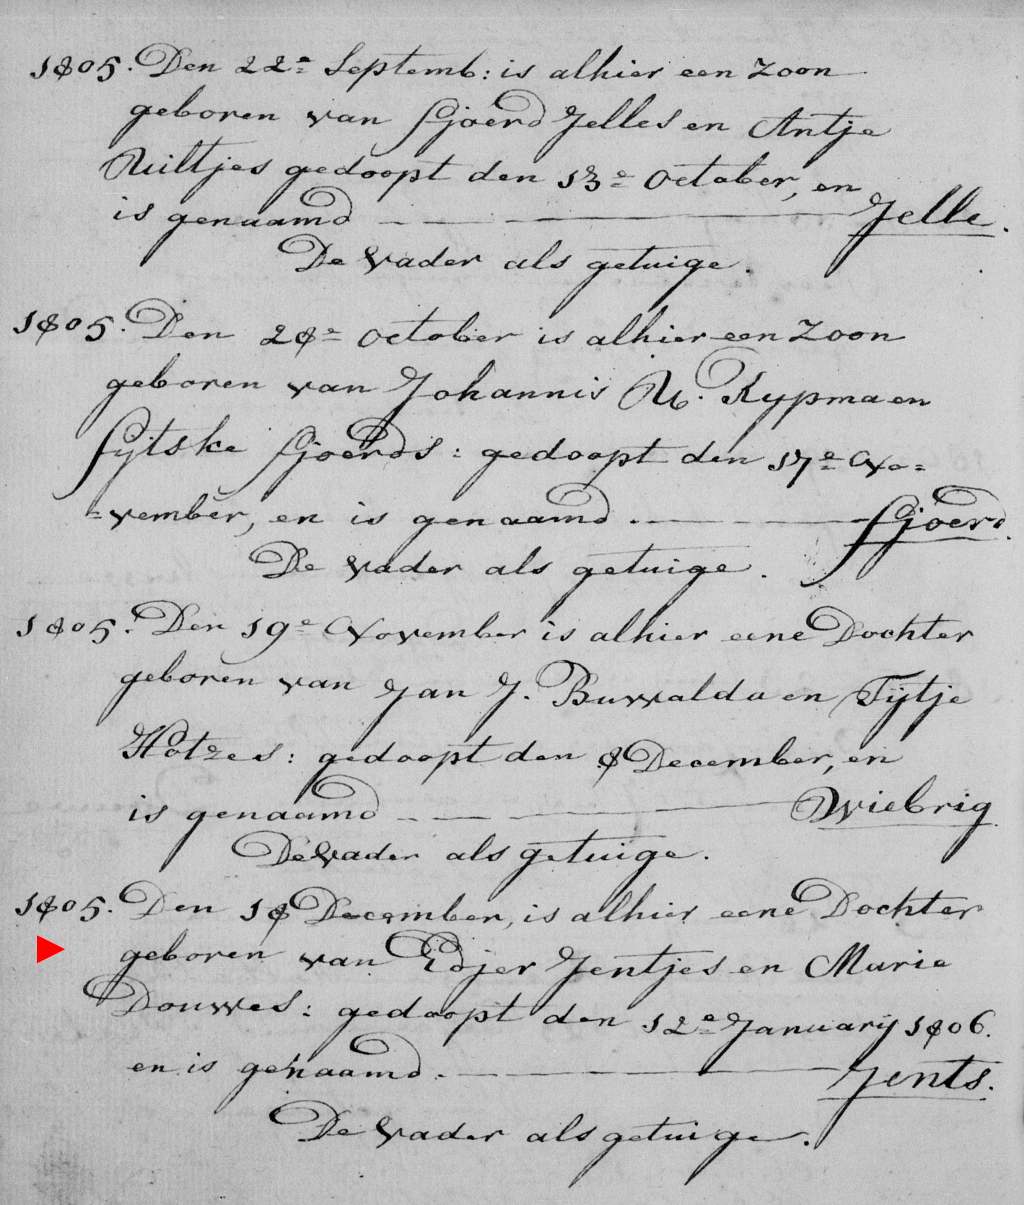 1805. Den 22e Septemb: is alhier een Zoon
geboren van Sjoerd Jelles en Antje
Wiltjes gedoopt den 13e October, en
is genaamd Jelle.
De Vader als getuige.
1805. Den 28e October is alhier een Zoon
geboren van Johannis W. Kypma en
Sytske Sjoerds: gedoopt den 17e No=
=vember, en is genaamd Sjoerd.
De Vader als getuige.
1805. Den 19e November is alhier eene Dochter
geboren van Jan J. Buwalda en Tytje
Hotzes: gedoopt den 8 December, en
is genaamd Wiebrig
De Vader als getuige.
1805. Den 18 December, is alhier eene Dochter
geboren van Edjer Jentjes en Murie
Douwes: gedoopt den 12e January 1806.
en is genaamd Jents.
De Vader als getuige.